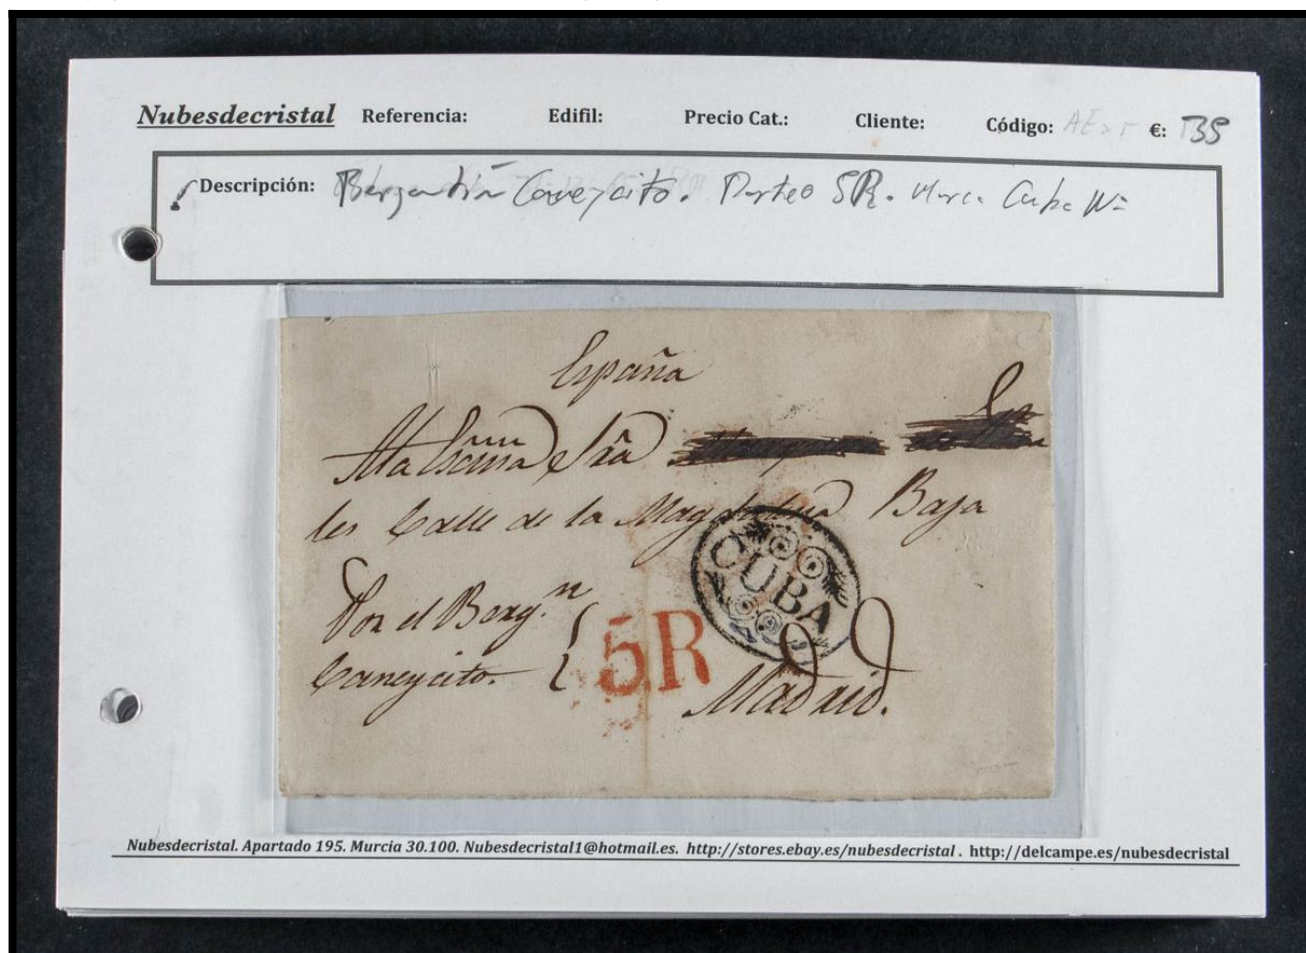 Nubesdecristal Referencia: Edifil: Precio Cat.: Cliente: Código: €: 35
Descripción: Bergantín Caneycito. Porteo 5R. Marca Cuba Nº
España
A la Excma Sra
les Calle de la Magdalena Baja
CUBA
Por el Bergn
Caneycito. 5R
Madrid.
Nubesdecristal. Apartado 195. Murcia 30.100. Nubesdecristal1@hotmail.es. http://stores.ebay.es/nubesdecristal . http://delcampe.es/nubesdecristal